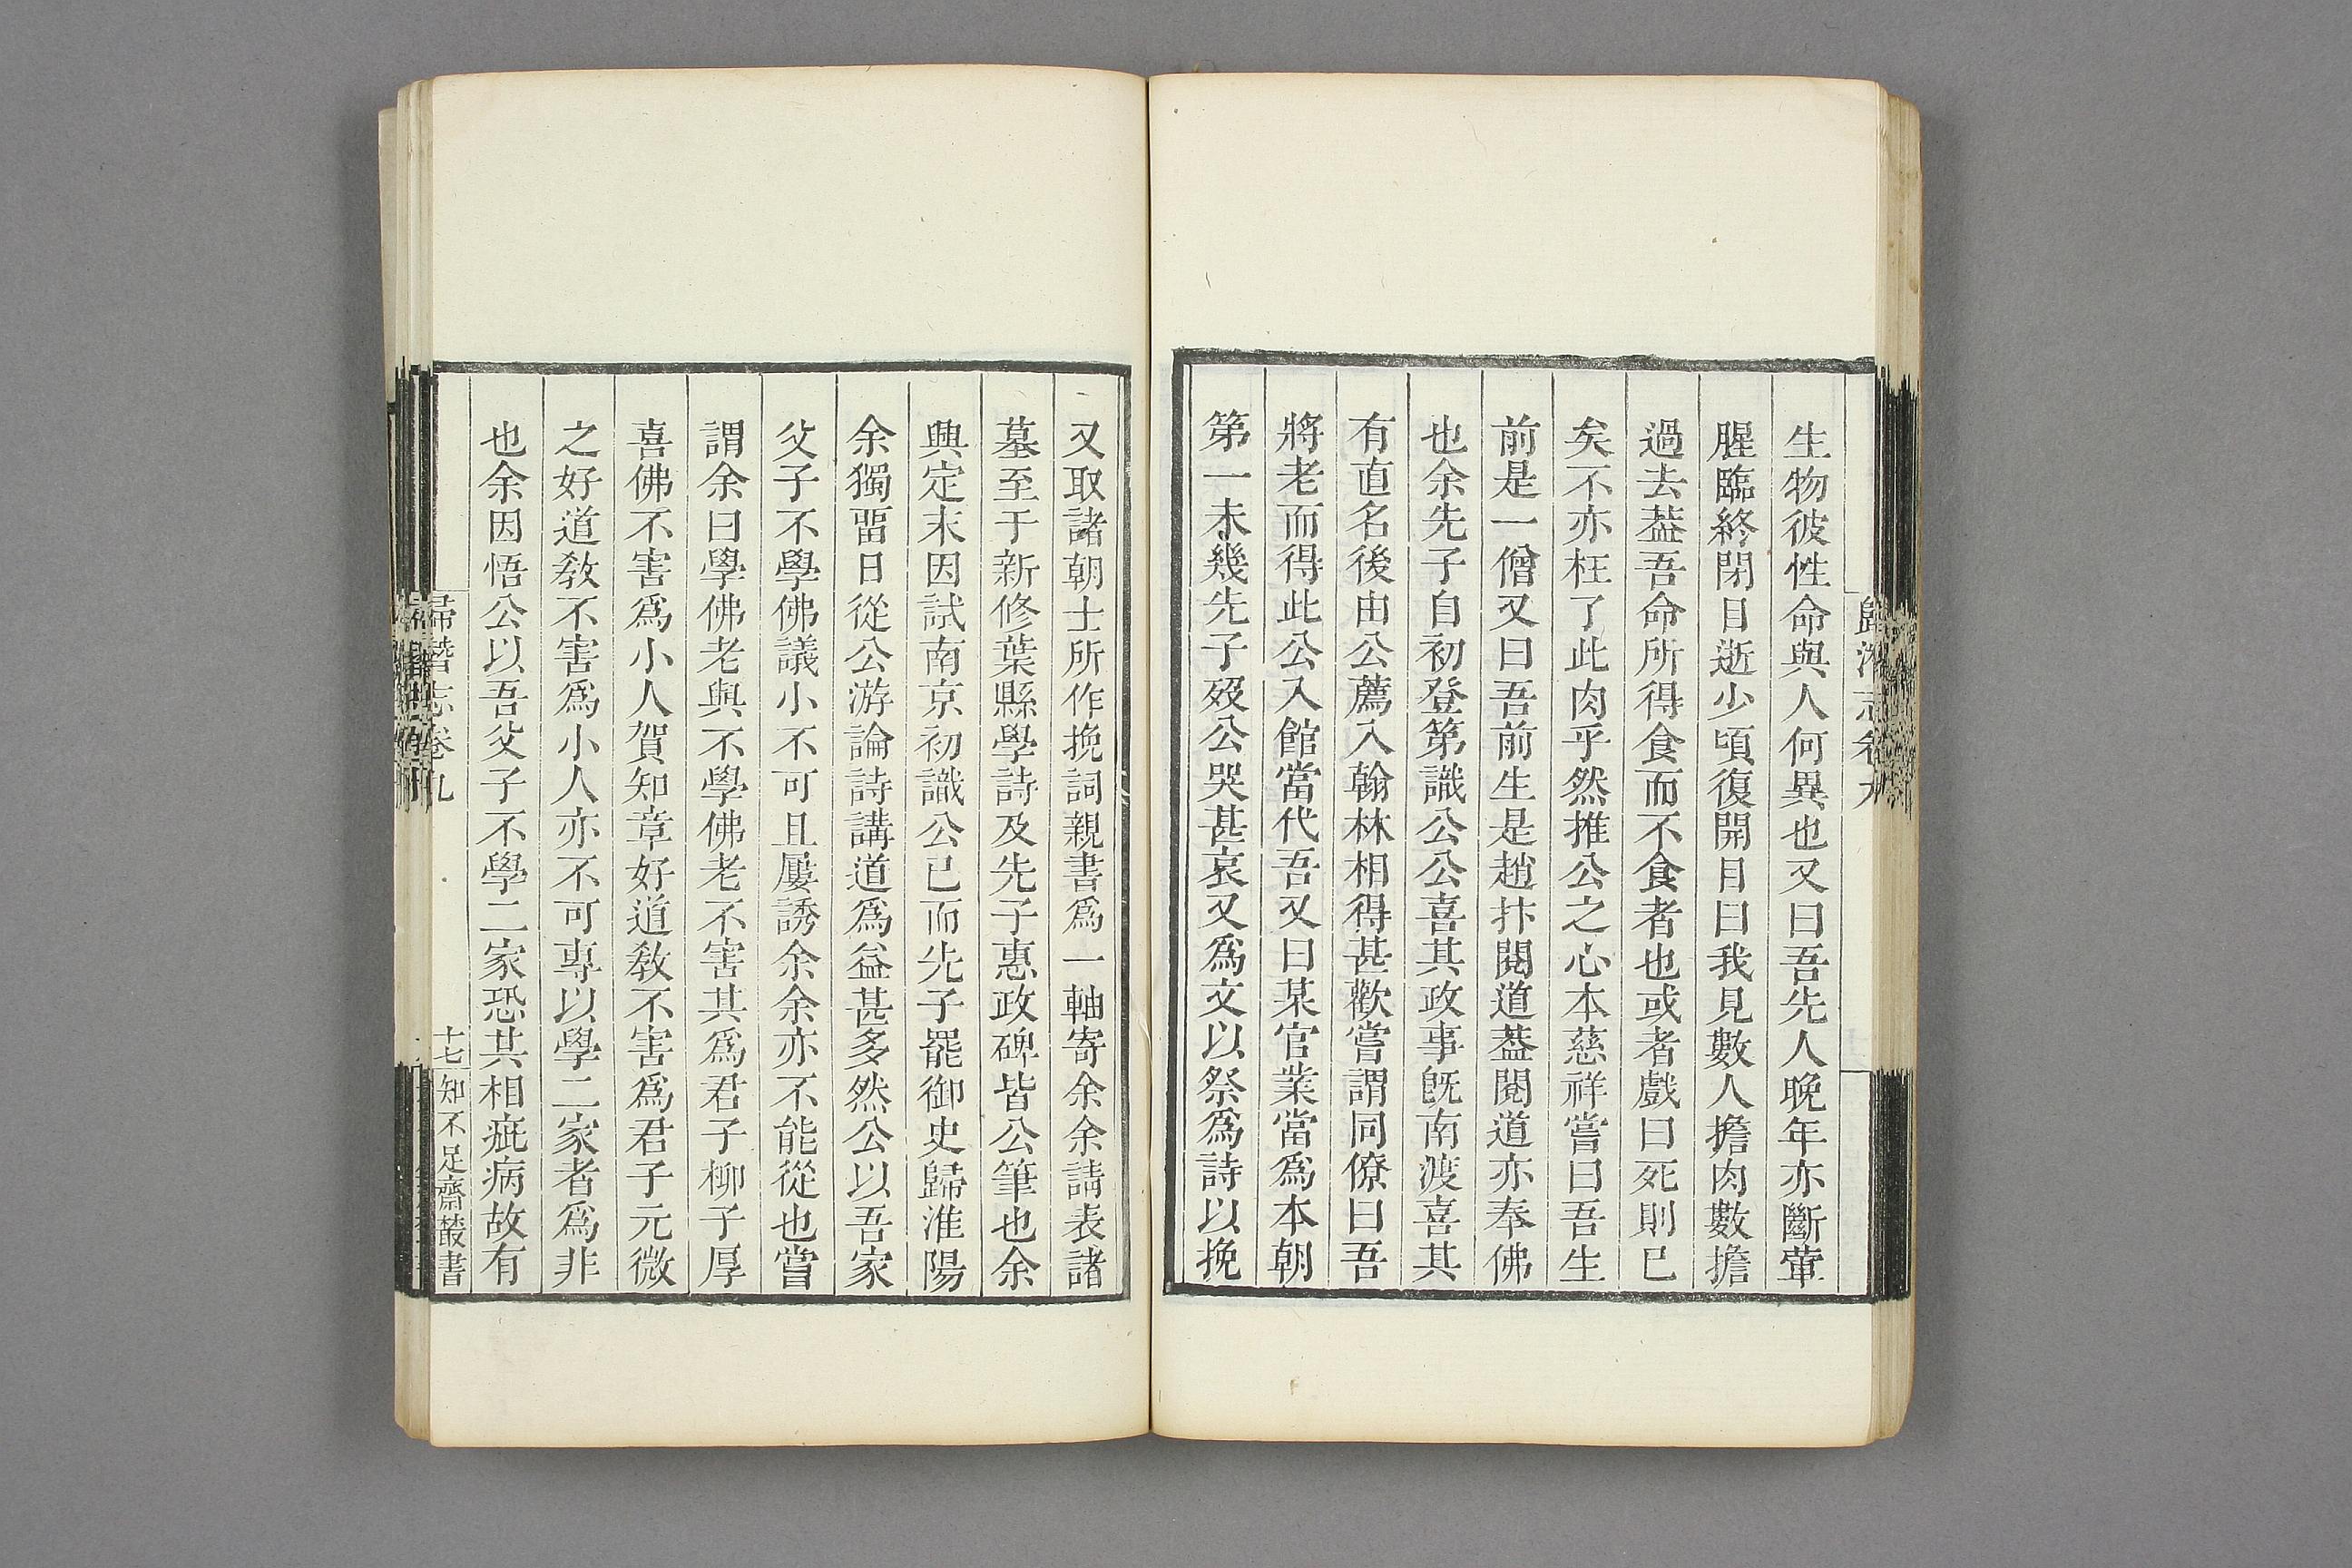 生物彼性命與人何異也又曰吾先人晚年亦斷葷
腥臨終閉目逝少頃復開目曰我見數人擔肉數擔
過去葢吾命所得食而不食者也或者戲曰死則已
矣不亦枉了此肉乎然推公之心本慈祥嘗曰吾生
前是一僧又曰吾前生是趙抃閱道葢閱道亦奉佛
也余先子自初登第識公公喜其政事旣南渡喜其
有直名後由公薦入翰林相得甚歡嘗謂同僚曰吾
將老而得此公入館當代吾又曰某官業當爲本朝
第一未幾先子歿公哭甚哀又爲文以祭爲詩以挽
又取諸朝士所作挽詞親書爲一軸寄余余請表諸
墓至于新修葉縣學詩及先子惠政碑皆公筆也余
興定末因試南京初識公已而先子罷御史歸淮陽
余獨畱日從公游論詩講道爲益甚多然公以吾家
父子不學佛議小不可且屢誘余余亦不能從也嘗
謂余曰學佛老與不學佛老不害其爲君子柳子厚
喜佛不害爲小人賀知章好道教不害爲君子元微
之好道教不害爲小人亦不可專以學二家者爲非
也余因悟公以吾父子不學二家恐其相疵病故有
歸潛志卷九
十七
知不足齋叢書